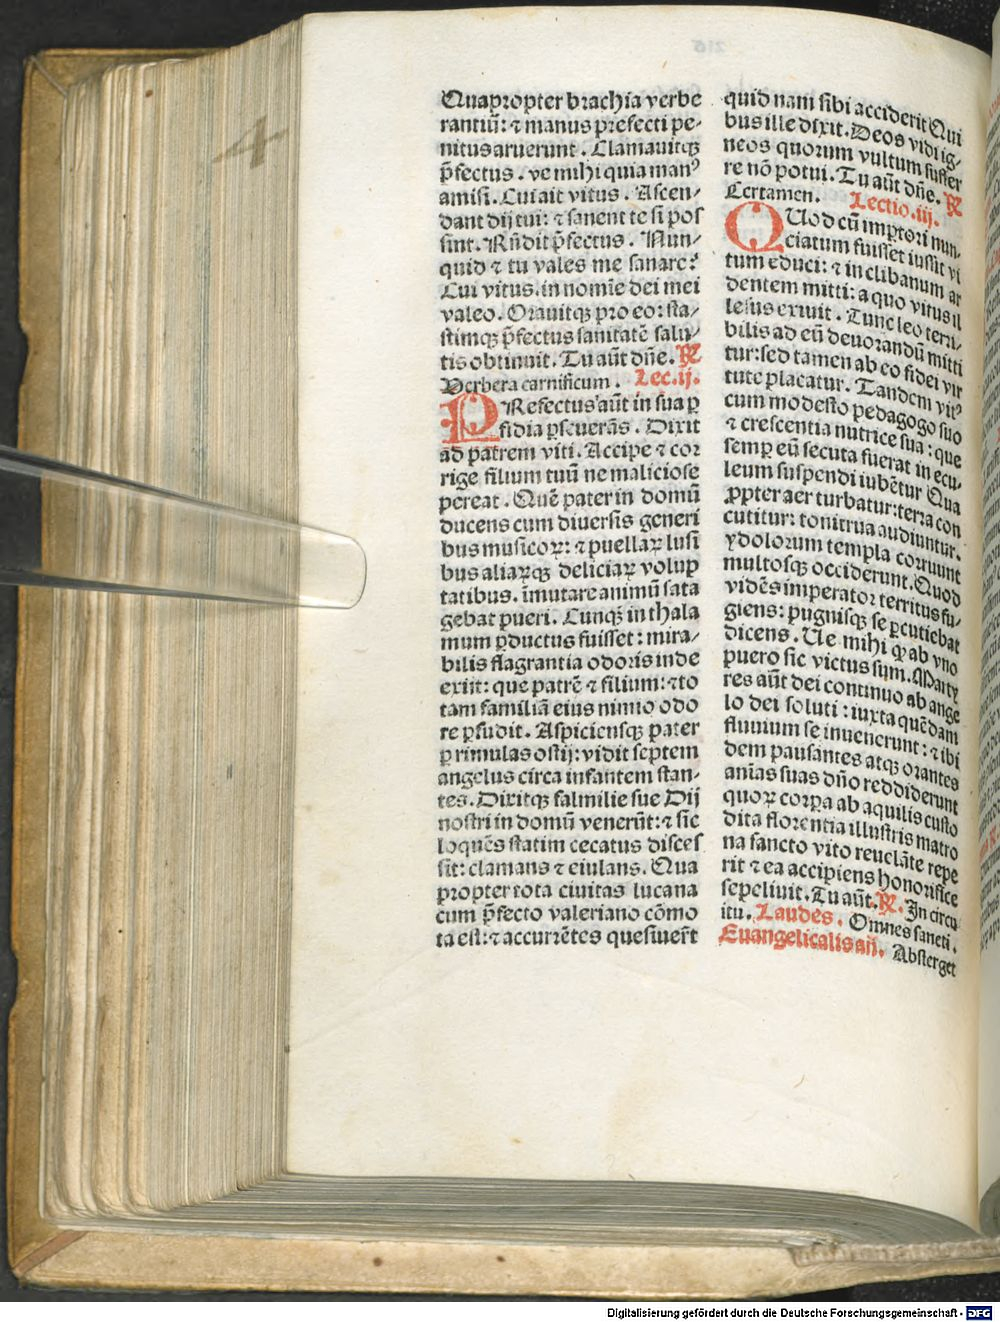 Quapropter brachia verbe
rantiū: ⁊ manus prefecti pe-
nitus aruerunt. Clamauitqꝫ
p̄fectus. ve mihi quia manꝰ
amisi. Cui ait vitus. Ascen-
dant dij tui: ⁊ sanent te si pos
sint. Rn̄dit p̄fectus. Nun-
quid ⁊ tu vales me sanare?
Cui vitus. in nomīe dei mei
valeo. Orauitqꝫ pro eo: sta-
stimqꝫ p̄fectus sanitatē salu-
tis obtinuit. Tu aūt dn̄e. ℟
Verbera carnificum. Lec.ij.
PRefectus aūt in sua ꝑ
fidia ꝑseuerās. Dixit
ad patrem viti. Accipe ⁊ cor
rige filium tuū ne maliciose
pereat. Quē pater in domū
ducens cum diuersis generi
bus musicoꝝ: ⁊ puellaꝝ lusi
bus aliaꝝqꝫ deliciaꝝ volup
tatibus. īmutare animū sata
gebat pueri. Cunqꝫ in thala
mum ꝑductus fuisset: mira-
bilis flagrantia odoris inde
exiit: que patrē ⁊ filium: ⁊ to
tam familiā eius nimio odo
re ꝑfudit. Aspiciensqꝫ pater
ꝑ rimulas ostij: vidit septem
angelus circa infantem stan-
tes. Dixitqꝫ falmilie sue Dij
nostri in domū venerūt: ⁊ sic
loquēs statim cecatus disces
sit: clamans ⁊ eiulans. Qua
propter tota ciuitas lucana
cum p̄fecto valeriano cōmo
ta est: ⁊ accurrētes quesiuer̄t
quid nam sibi acciderit Qui
bus ille dixit. Deos vidi ig-
neos quorum vultum suffer
re nō potui. Tu aūt dn̄e. ℟
Certamen. Lectio.iij.
QUod cū imꝑtori nun-
ciatum fuisset iussit vi
tum educi: ⁊ in clibanum ar
dentem mitti: a quo vitus il
lesus exiuit. Tunc leo terri-
bilis ad eū deuorandū mitti
tur: sed tamen ab eo fidei vir
tute placatur. Tandem vitꝰ
cum modesto pedagogo suo
⁊ crescentia nutrice sua: que
semꝑ eū secuta fuerat in ecu-
leum suspendi iubētur Qua
ꝓpter aer turbatur: terra con
cutitur: tonitrua audiuntur.
ydolorum templa corruunt
multosqꝫ occiderunt. Quod
vidēs imperator territus fu-
giens: pugnisqꝫ se ꝑcutiebat
dicens. Ue mihi ꝙ ab vno
puero sic victus sum. Marty
res aūt dei continuo ab ange
lo dei soluti: iuxta quēdam
fluuium se inuenerunt: ⁊ ibi
dem pausantes atqꝫ orantes
anīas suas dn̄o reddiderunt
quoꝝ corꝑa ab aquilis custo
dita florentia illustris matro
na sancto vito reuelāte repe
rit ⁊ ea accipiens honorifice
sepeliuit. Tu aūt. ℟. In circu
itu. Laudes. Omnes sancti.
Euangelicalis an̄. Absterget
4
Digitalisierung gefördert durch die Deutsche Forschungsgemeinschaft - DFG